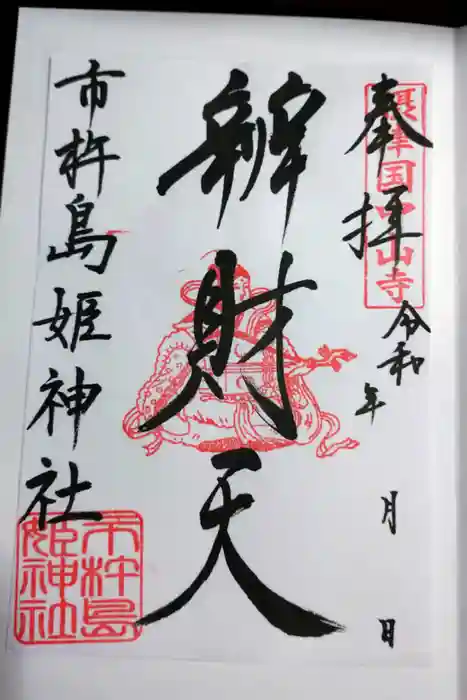 奉拝
摂津国中山寺
令和 年 月 日
辨財天
市杵島姫神社
市杵島
姫神社